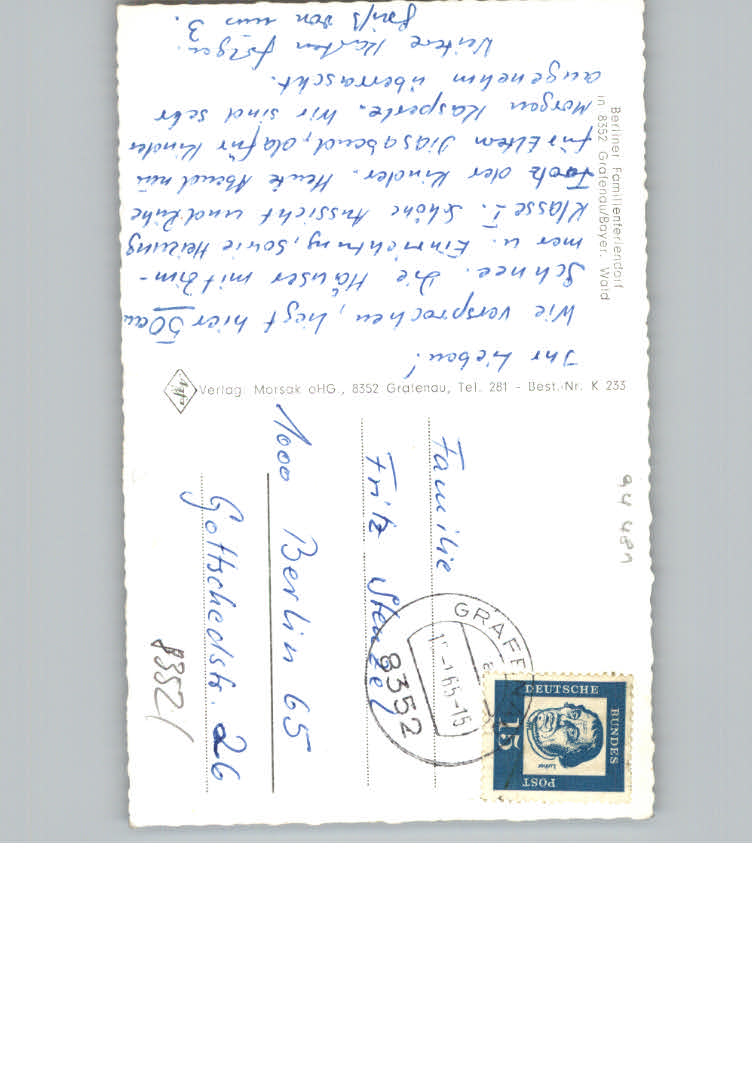 Berliner Familienferiendorf
in 8352 Grafenau/Bayer. Wald
Ihr Lieben!
Wie versprochen, liegt hier 50 cm
Schnee. Die Häuser mit Zim-
mer u. Einrichtung, sowie Heizung
Klasse I. Schöne Aussicht und Ruhe
trotz der Kinder. Heute Abend nur
für Eltern Diasabend, dafür Kinder
Morgen Kasperle. Wir sind sehr
angenehm überrascht.
Weitere Karten folgen.
Gruß von uns 3.
Verlag: Morsak oHG., 8352 Grafenau, Tel. 281 - Best.-Nr. K 233
Familie
Fritz Stenzel
1000 Berlin 65
Gottschedstr. 26
8352
GRAFE
65-15
8352
DEUTSCHE
BUNDES
POST
15
Luther